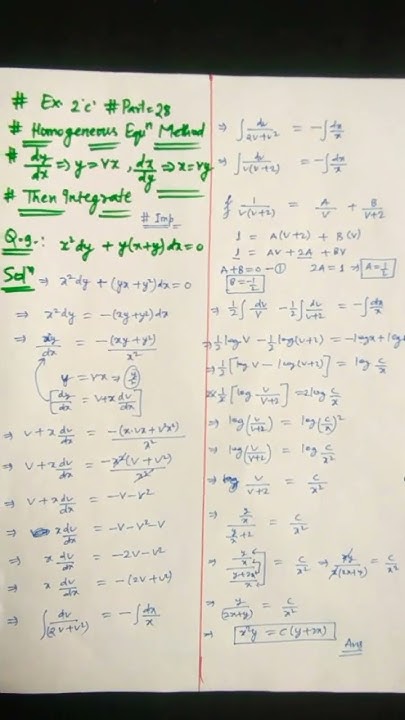 # Ex. 2'c' # Part=28
# Homogeneous Equⁿ Method
# dy/dx ⇒ y=vx , dx/dy ⇒ x=vy
# Then Integrate
# Imp
Q.9.: x²dy + y(x+y)dx=0
Solⁿ
⇒ x²dy + (yx+y²)dx=0
⇒ x²dy = -(xy+y²)dx
⇒ dy/dx = -(xy+y²)/x²
y = vx ⇒ y/x
dy/dx = v+x dv/dx
⇒ v+x dv/dx = -(x·vx+v²x²)/x²
⇒ v+x dv/dx = -x²(v+v²)/x²
⇒ v+x dv/dx = -v-v²
⇒ x dv/dx = -v-v²-v
⇒ x dv/dx = -2v-v²
⇒ x dv/dx = -(2v+v²)
⇒ ∫ dv/(2v+v²) = -∫ dx/x
⇒ ∫ dv/2v+v² = -∫ dx/x
⇒ ∫ dv/v(v+2) = -∫ dx/x
1/v(v+2) = A/v + B/v+2
1 = A(v+2) + B(v)
1 = Av+2A+Bv
A+B=0 -① 2A=1 ⇒ A=1/2
B=-1/2
⇒ 1/2 ∫ dv/v - 1/2 ∫ dv/v+2 = -∫ dx/x
⇒ 1/2 log v - 1/2 log(v+2) = -log x + log c
⇒ 1/2 [log v - log(v+2)] = log c/x
1/2 [log v/v+2] = 2log c/x
⇒ log(v/v+2) = log(c/x)²
⇒ log(v/v+2) = log c/x²
⇒ v/v+2 = c/x²
⇒ y/x / y/x+2 = c/x²
⇒ y/x / y+2x/x = c/x² ⇒ xy/x(2x+y) = c/x²
⇒ y/(2x+y) = c/x²
⇒ x²y = c(y+2x)
Ans